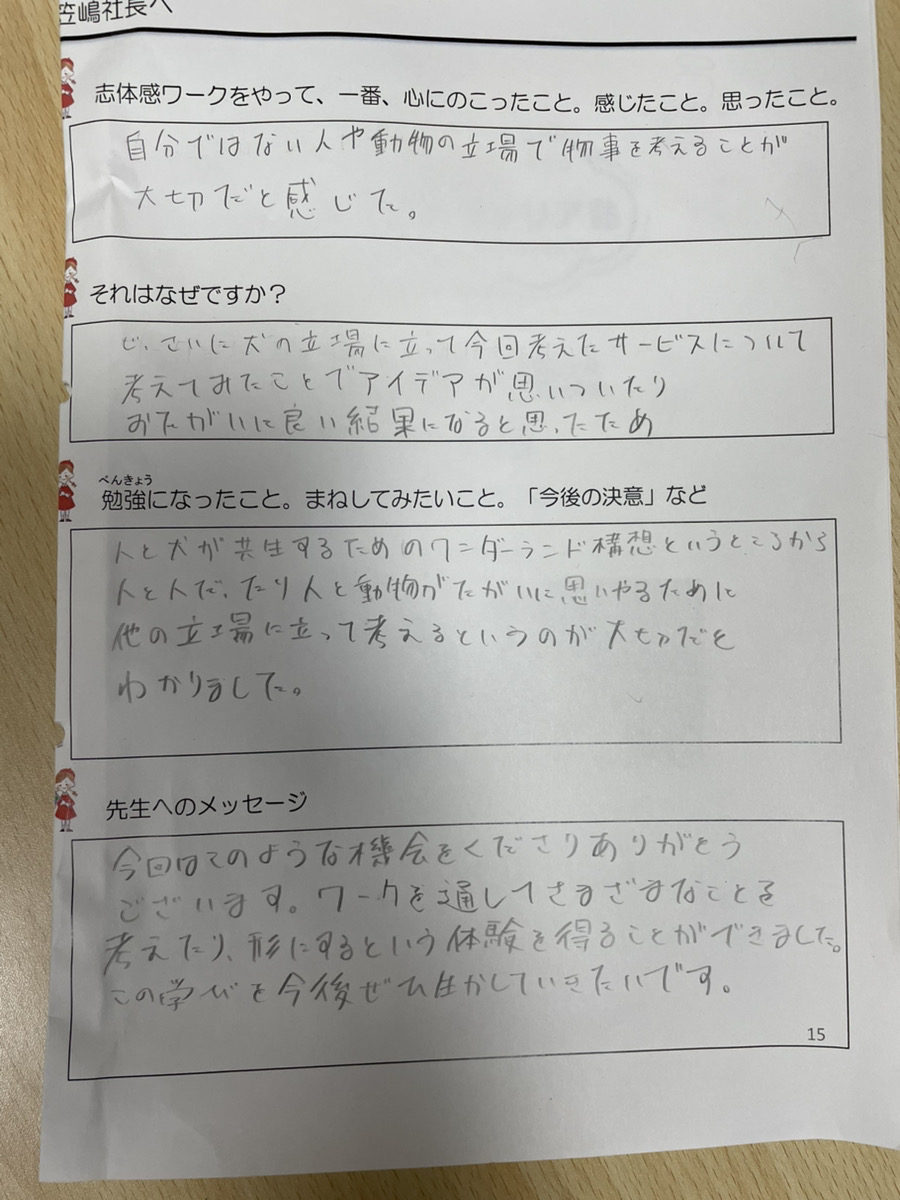 笠嶋社長へ
志体感ワークをやって、一番、心にのこったこと。感じたこと。思ったこと。
自分ではない人や動物の立場で物事を考えることが
大切だと感じた。
それはなぜですか？
じっさいに犬の立場に立って今回考えたサービスについて
考えてみたことでアイデアが思いついたり
おたがいに良い結果になると思ったため
べんきょう
勉強になったこと。まねしてみたいこと。「今後の決意」など
人と犬が共生するためのワンダーランド構想というところから
人と人だったり人と動物がたがいに思いやるために
他の立場に立って考えるというのが大切だと
わかりました。
先生へのメッセージ
今回はこのような機会をくださりありがとう
ございます。ワークを通してさまざまなことを
考えたり、形にするという体験を得ることができました。
この学びを今後ぜひ生かしていきたいです。
15